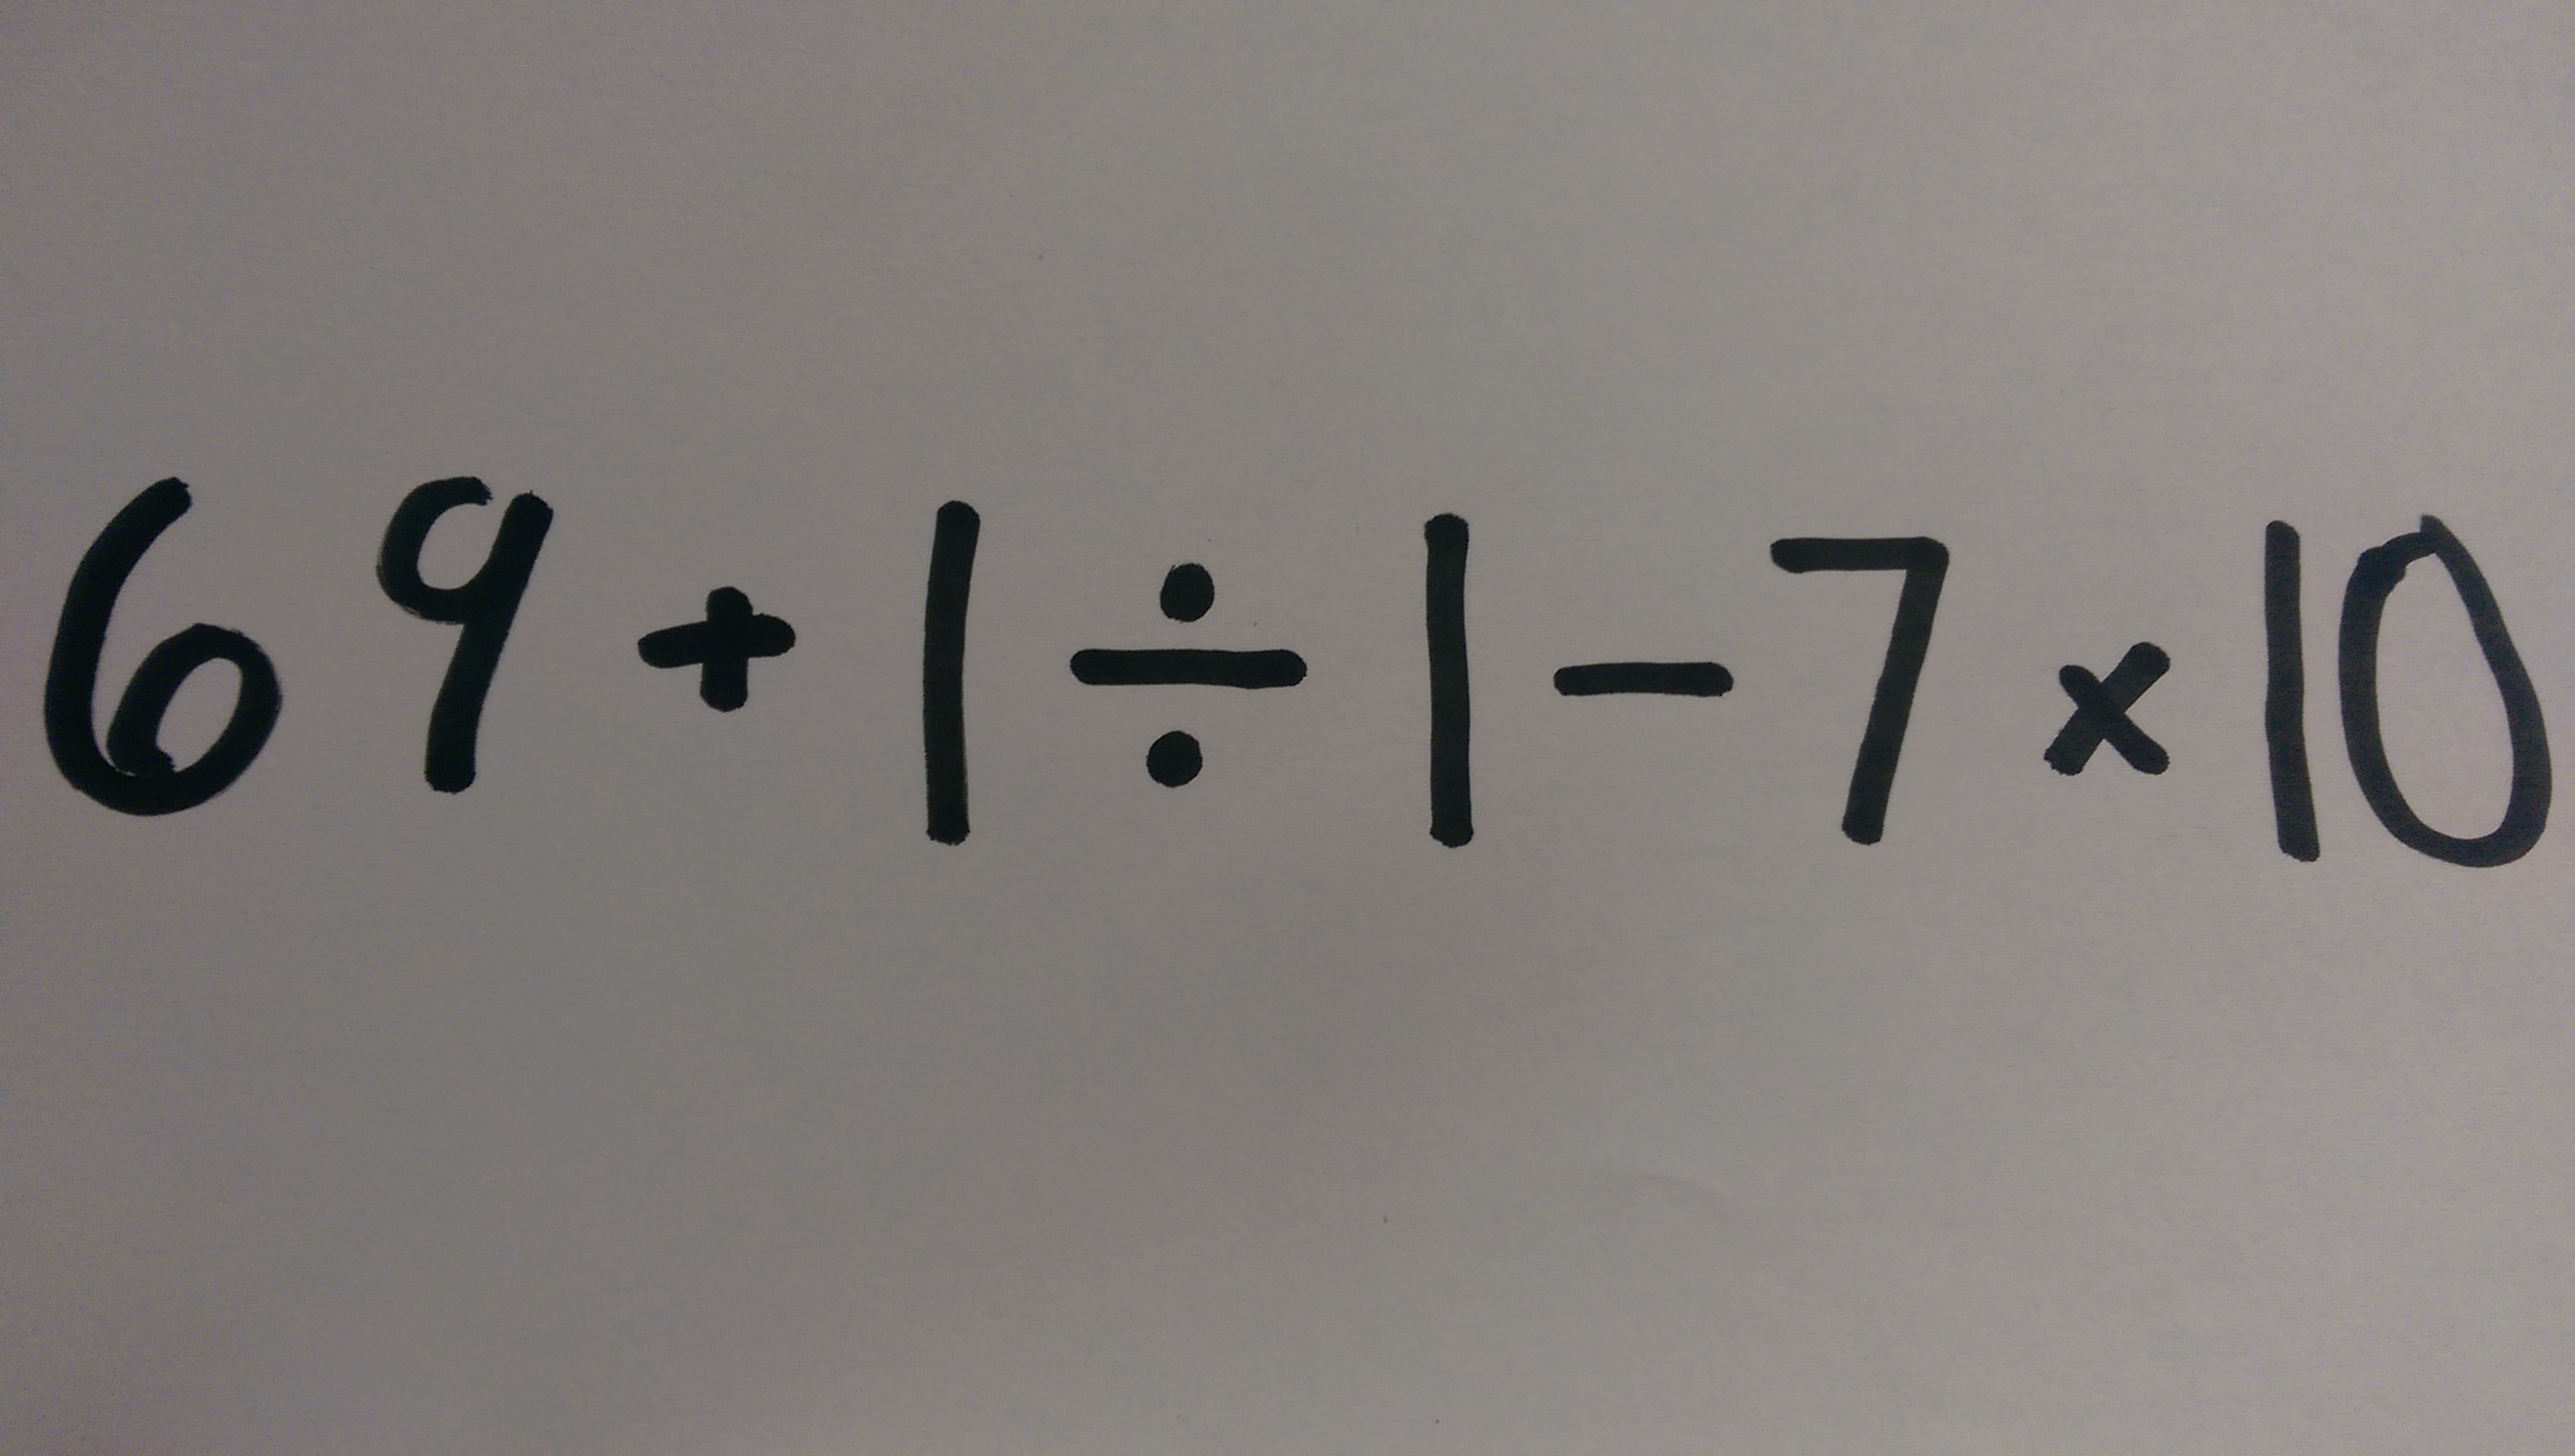 69 + 1 ÷ 1 - 7 × 10